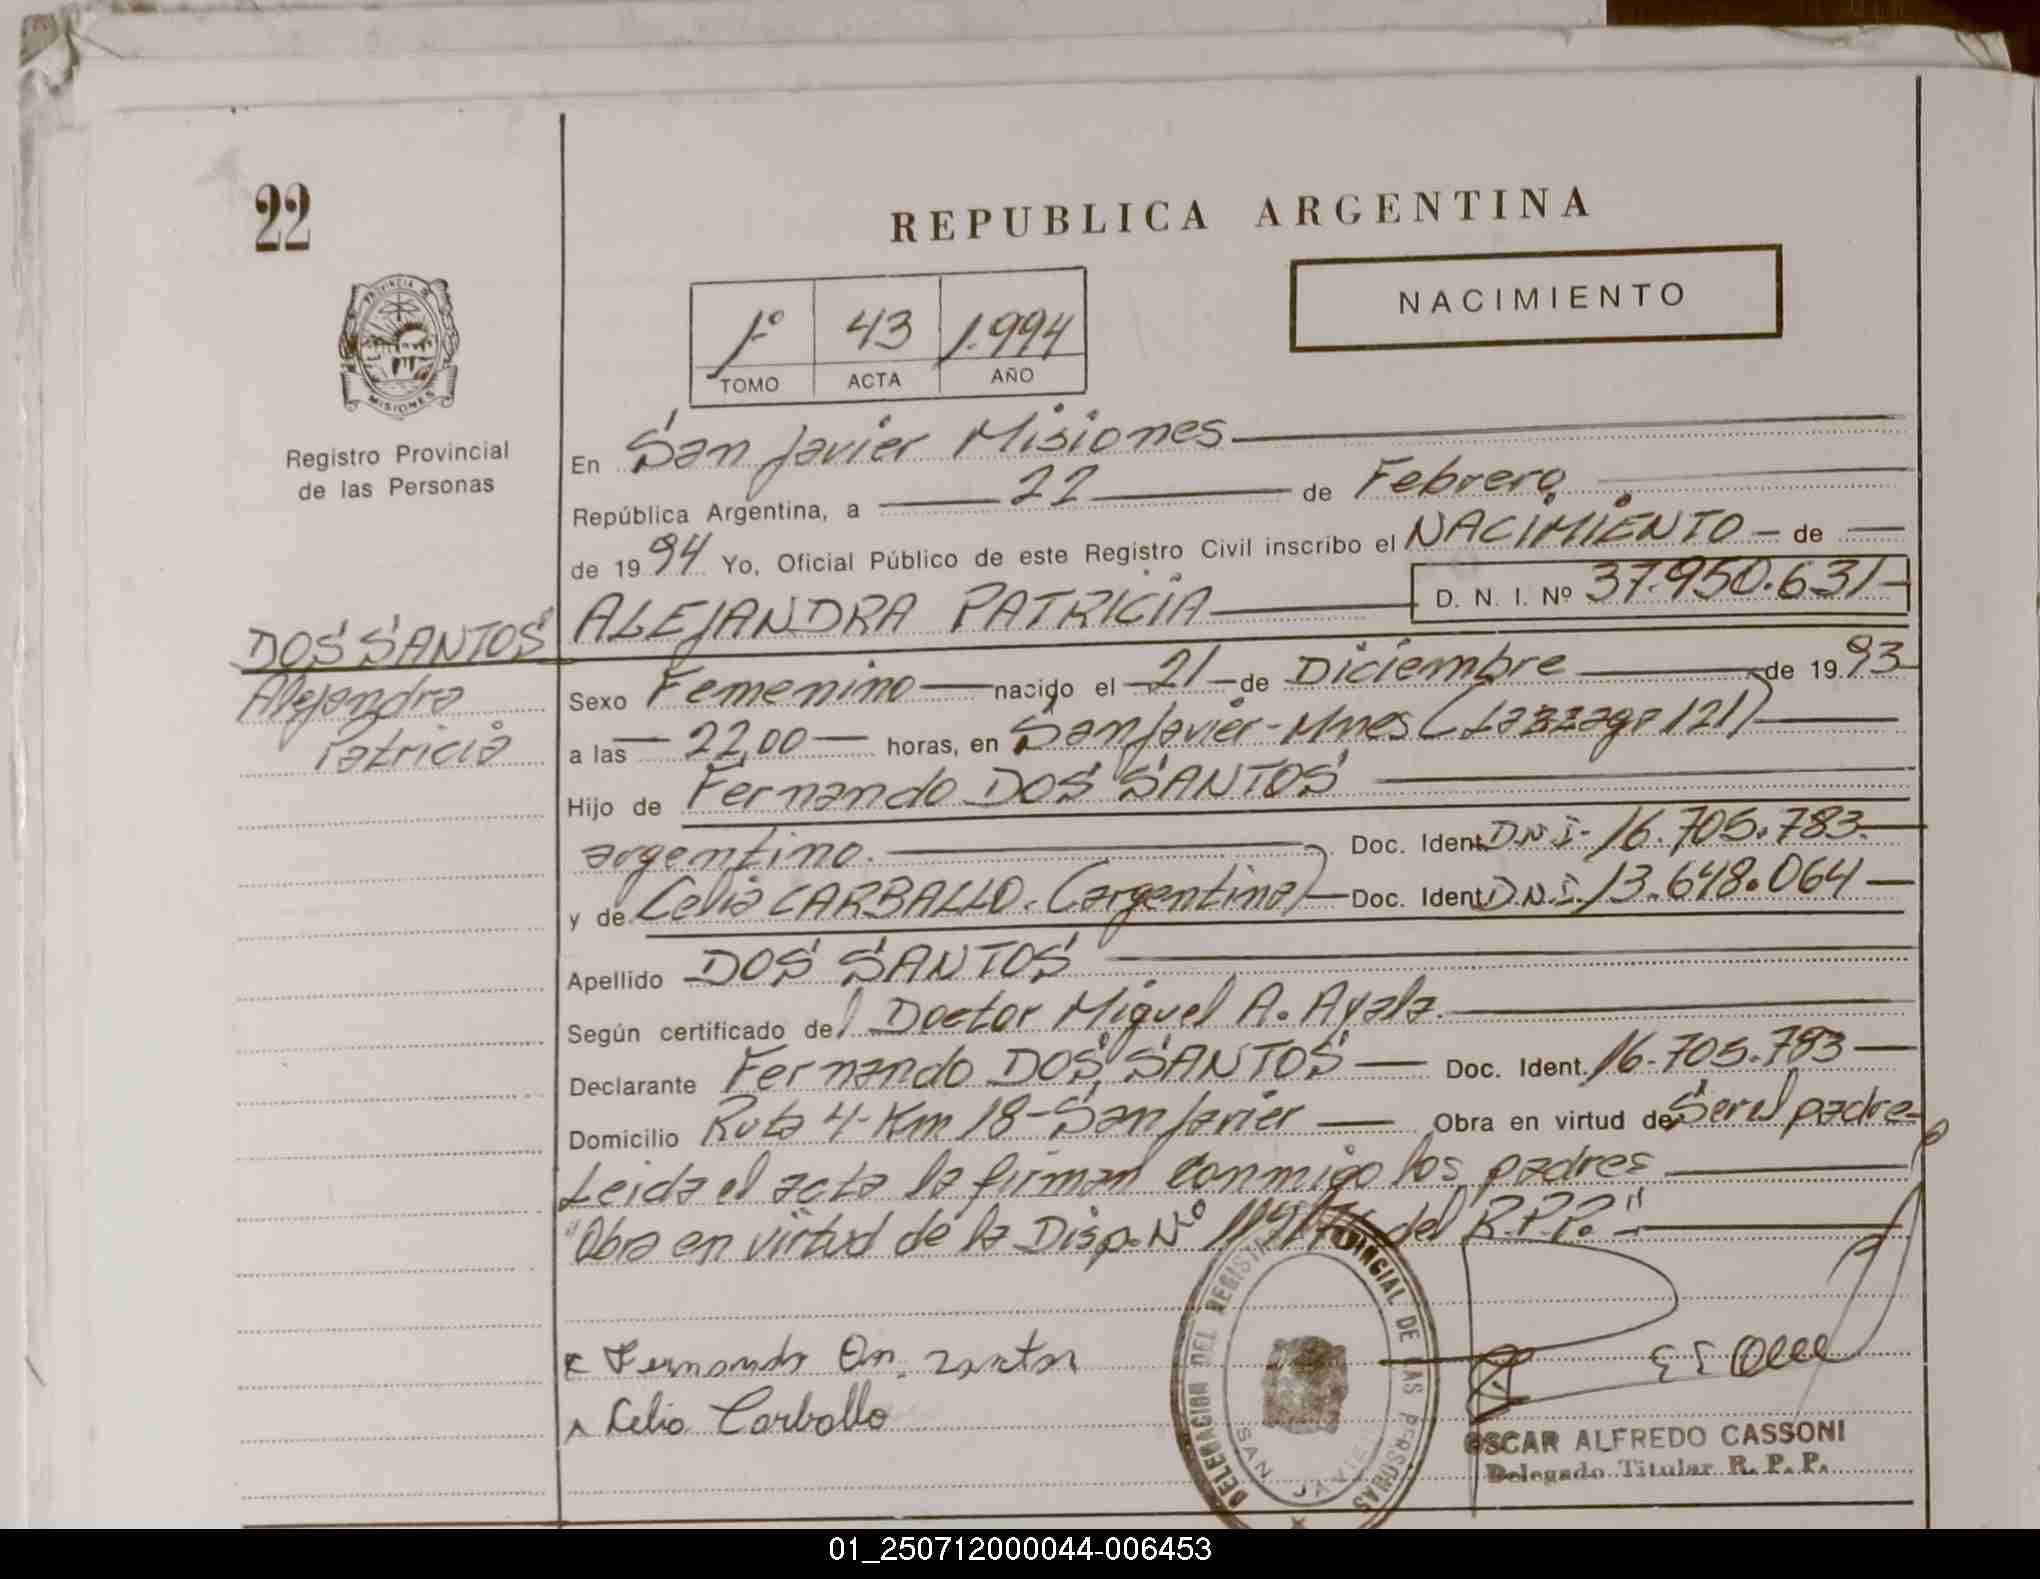 22
REPUBLICA ARGENTINA
NACIMIENTO
1º 43 1.994
TOMO ACTA AÑO
PROVINCIA DE MISIONES
Registro Provincial
de las Personas
En San Javier Misiones
República Argentina, a 22 de Febrero
de 1994 Yo, Oficial Público de este Registro Civil inscribo el NACIMIENTO de
DOS SANTOS ALEJANDRA PATRICIA D. N. I. Nº 37.950.631
Alejandra
Patricia
Sexo Femenino nacido el 21 de Diciembre de 1993
a las 22,00 horas, en San Javier - Mnes ( 121)
Hijo de Fernando DOS SANTOS
argentino. Doc. Ident. D.N.I. 16.705.783.
y de Celia CARBALLO. (argentina) Doc. Ident. D.N.I. 13.648.064
Apellido DOS SANTOS
Según certificado del Doctor Miguel A. Ayala.
Declarante Fernando DOS SANTOS Doc. Ident. 16.705.783
Domicilio Ruta 4 - Km 18 - San Javier Obra en virtud de Ser el padre
Leida el acta la firman conmigo los padres
"Obra en virtud de la Disp. Nº del R.P.P."
Fernando santos
Celia Carballo
DELEGACION DEL REGISTRO PROVINCIAL DE LAS PERSONAS
SAN JAVIER
OSCAR ALFREDO CASSONI
Delegado Titular R. P. P.
01_250712000044-006453